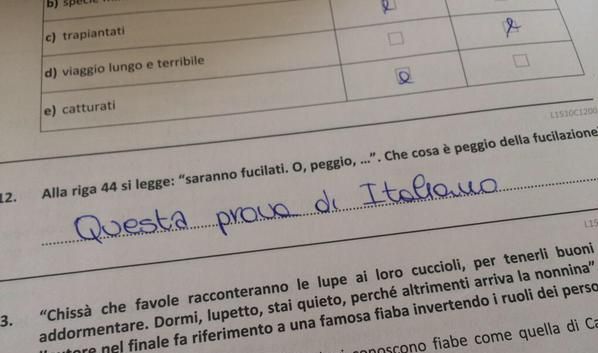 b) specie
c) trapiantati
d) viaggio lungo e terribile
e) catturati
L1510C1200
12. Alla riga 44 si legge: “saranno fucilati. O, peggio, ...”. Che cosa è peggio della fucilazione
Questa prova di Italiano
L15
3. “Chissà che favole racconteranno le lupe ai loro cuccioli, per tenerli buoni
addormentare. Dormi, lupetto, stai quieto, perché altrimenti arriva la nonnina”
nel finale fa riferimento a una famosa fiaba invertendo i ruoli dei perso
conoscono fiabe come quella di Ca